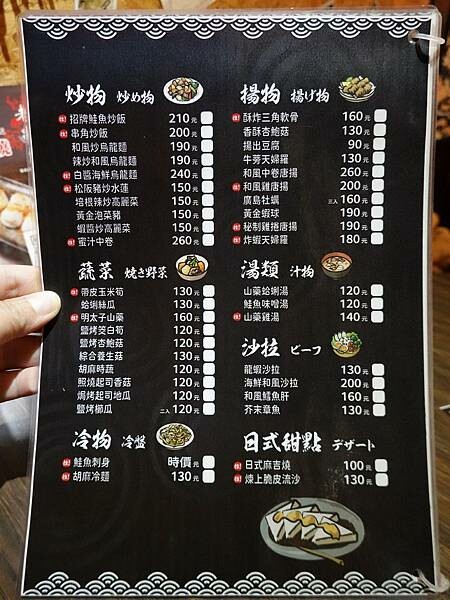 炒物 炒め物
推! 招牌鮭魚炒飯 210元
推! 串角炒飯 200元
和風炒烏龍麵 190元
辣炒和風烏龍麵 190元
推! 白醬海鮮烏龍麵 240元
推! 松阪豬炒水蓮 150元
培根辣炒高麗菜 150元
黃金泡菜豬 150元
蝦醬炒高麗菜 150元
推! 蜜汁中卷 260元
蔬菜 焼き野菜
推! 帶皮玉米筍 130元
蛤蜊絲瓜 130元
推! 明太子山藥 160元
鹽烤茭白筍 120元
鹽烤杏鮑菇 120元
綜合養生菇 130元
胡麻時蔬 120元
照燒起司香菇 120元
焗烤起司地瓜 120元
鹽烤櫛瓜 二入 120元
冷物 冷盤
推! 鮭魚刺身 時價元
推! 胡麻冷麵 130元
揚物 揚げ物
推! 酥炸三角軟骨 160元
香酥杏鮑菇 130元
揚出豆腐 90元
牛蒡天婦羅 130元
和風中卷唐揚 260元
推! 和風雞唐揚 200元
廣島牡蠣 三入 160元
黃金蝦球 190元
推! 秘制雞捲唐揚 190元
推! 炸蝦天婦羅 180元
湯類 汁物
山藥蛤蜊湯 120元
鮭魚味噌湯 120元
推! 山藥雞湯 140元
沙拉 ビーフ
龍蝦沙拉 130元
海鮮和風沙拉 200元
和風鱈魚肝 160元
芥末章魚 130元
日式甜點 デザート
推! 日式麻吉燒 100元
推! 煉上脆皮流沙 130元